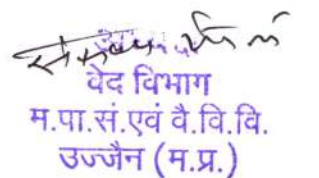 वेद विभाग
म.पा.सं.एवं वै.वि.वि.
उज्जैन (म.प्र.)